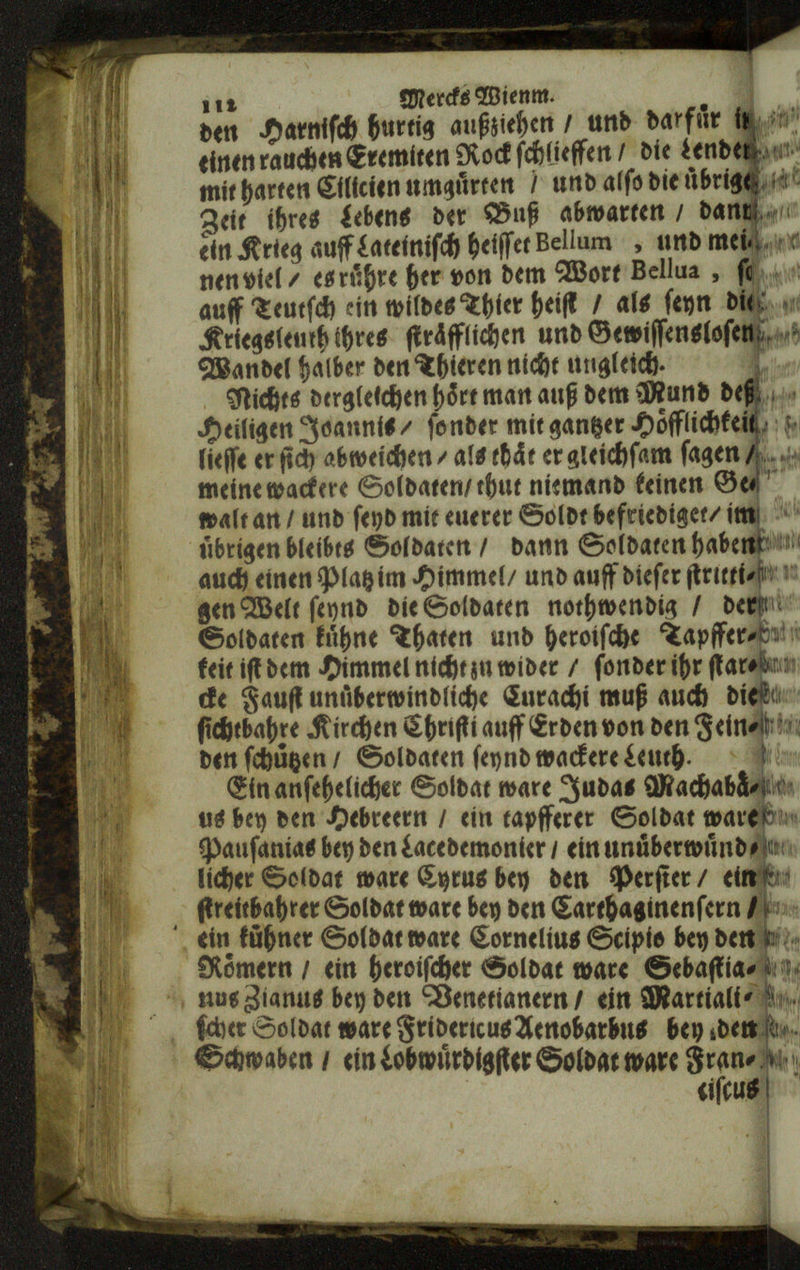 112 Mercks Wienm.
den Harnisch hurtig außziehen / und darfür in
einen rauchen Eremiten Rock schlieffen / die Lenden
mit harten Cilicien umgürten / und also die übrige
Zeit ihres Lebens der Buß abwarten / dann
ein Krieg auff Lateinisch heisset Bellum , und mei-
nen viel / es rühre her von dem Wort Bellua , so
auff Teutsch ein wildes Thier heist / als seyn die
Kriegsleuth ihres sträfflichen und Gewissenslosen
Wandel halber den Thieren nicht ungleich.
Nichts dergleichen hört man auß dem Mund deß
Heiligen Joannis / sonder mit gantzer Höfflichkeit
liesse er sich abweichen / als thät er gleichsam sagen /
meine wackere Soldaten / thut niemand keinen Ge-
walt an / und seyd mit euerer Soldt befriediget / im
übrigen bleibts Soldaten / dann Soldaten haben
auch einen Platz im Himmel / und auff dieser stritti-
gen Welt seynd die Soldaten nothwendig / der
Soldaten kühne Thaten und heroische Tapffer-
keit ist dem Himmel nicht zu wider / sonder ihr star-
cke Faust unüberwindliche Curachi muß auch die
sichtbahre Kirchen Christi auff Erden von den Fein-
den schützen / Soldaten seynd wackere Leuth.
Ein ansehelicher Soldat ware Judas Machabä-
us bey den Hebreern / ein tapfferer Soldat ware
Pausanias bey den Lacedemonier / ein unüberwünd-
licher Soldat ware Cyrus bey den Persier / ein
streitbahrer Soldat ware bey den Carthaginensern /
ein kühner Soldat ware Cornelius Scipio bey den
Römern / ein heroischer Soldat ware Sebastia-
nus Zianus bey den Venetianern / ein Martiali-
scher Soldat ware Fridericus Aenobarbus bey den
Schwaben / ein Lobwürdigster Soldat ware Fran-
ciscus